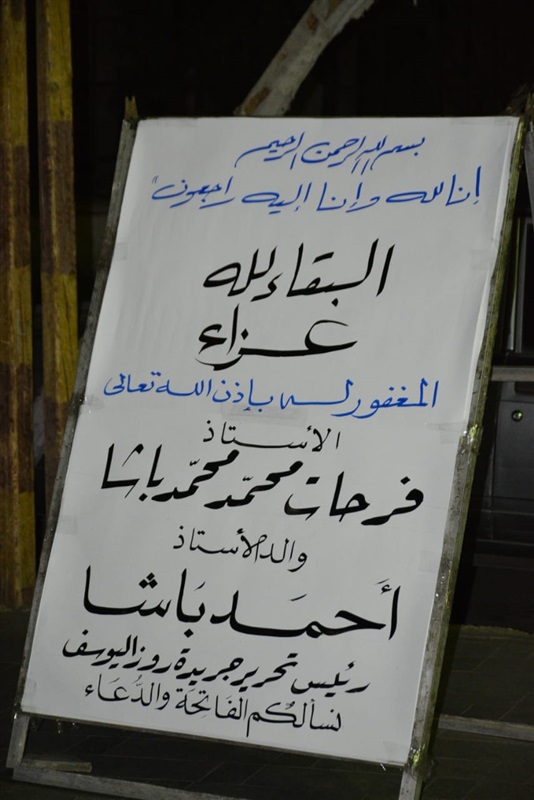 بسم الله الرحمن الرحيم
إنا لله وإنا إليه راجعون"
البقاء لله
عزاء
المغفور له بإذن الله تعالى
الأستاذ
فرحات محمّد محمّد باشا
والد الأستاذ
أَحمَد بَاشا
رئيس تحرير جريدة روز اليوسف
نسألكم الفَاتحَة والدُّعَاء